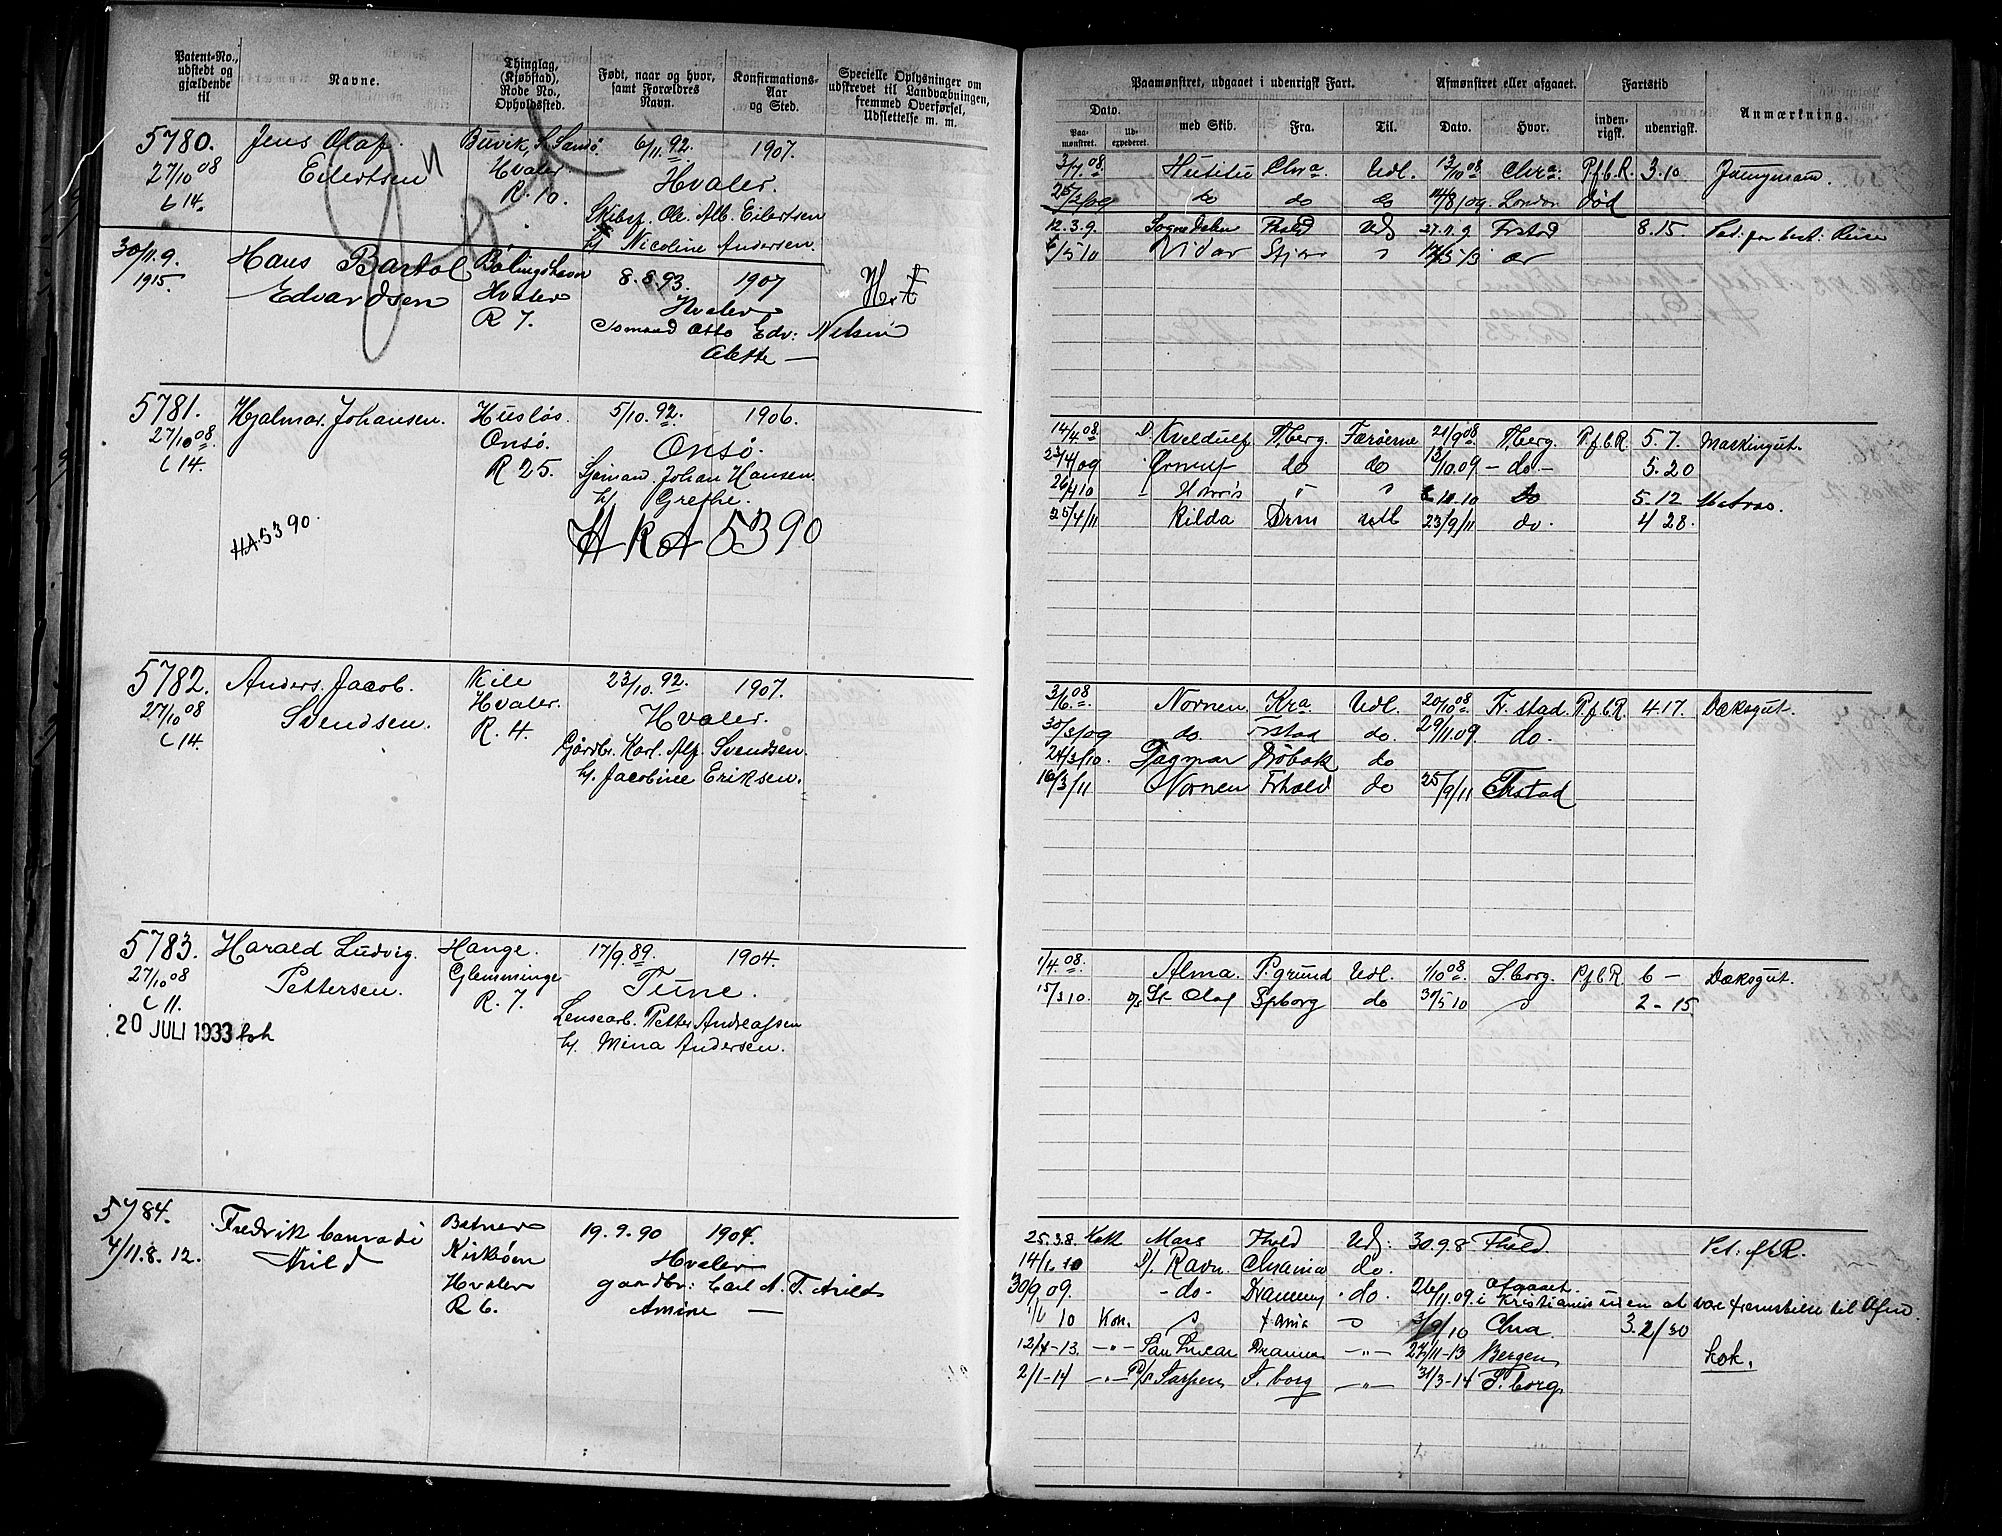 Patent-No., udstedt og gjældende til
Navne.
Thinglag, (Kjøbstad), Rode No., Opholdssted.
Født, naar og hvor, samt Forældres Navn.
Konfirmations-Aar og Sted.
Specielle Oplysninger om udskrevet til Landvæbningen, fremmed Overførsel, Udslettelse m. m.
5780. Jens Olaf Buvik, S. Sandø. 6/11. 92. 1907.
27/10 08 Eilertsen Hvaler. Hvaler.
t 14. R. 10.
Skibsf. Ole. Alb. Eilertsen
h/ Nicoline Andersen.
30/11.9. Hans Bartol Bølingshavn
1915. Edvardsen Hvaler 8.8.93. 1907
R 7. Hvaler
Sømand Otto Edv: Nilsen
Alette —
5781. Hjalmar Johansen. Husløs. 5/10. 92. 1906.
27/10 08 Onsø. Onsø.
t 14. R 25. Sjømand. Johan Hansen.
h/ Grethe.
HA 5390. HRA 5390
5782. Anders. Jacob. Kile 23/10. 92. 1907.
27/10 08 Svendsen. Hvaler. Hvaler.
t 14. R. 4. Gårdbr. Karl. Alf. Svendsen.
h/. Jacobine Eriksen.
5783. Harald Ludvig. Hange. 17/9. 89. 1904.
27/10 08 Pettersen. Glemminge Tune.
t 11. R. 7. Lensearb. Petter Andreassen
20 JULI 1933 h/. Mina Andersen.
5784. Fredrik Conradi 19.9.90 1904.
4/11.8.12. Arild Kirkøen Hvaler
Hvaler gaardbr: Carl A. T. Arild
R 6. Amine —
Paamønstret, udgaaet i udenrigsk Fart.
Afmønstret eller afgaaet.
Fartstid
Anmærkning.
Dato.
Paa-mønstret. Ud-expederet. med Skib. Fra. Til. Dato. Hvor. inden-rigsk. udenrigsk.
3/7. 08 Chra Udl. 13/10 08 Chra: P.f.b.R. 3.10 Jungmand.
25/2/09 do do do 14/8/09 London død
12.3.9. Sognedalen Fhald Udl 27.11.9 Frstad 8.15.
/5 10 Vidar
14/4. 08. D. Kveldulf Tberg. Færøerne 21/9 08 Tberg. P.f.b.R 5.7. Maskingut.
23/4/09 Ørnulf do do 13/10.09 — do — 5.20
26/4 10 do 5.12 Matros.
25/4/11 Kilda Drm Udl 23/9/11 do. 4 28.
3/6. 08. Nornen Kra Udl. 20/10 08 Fr.stad. P.f.b.R. 417. Dæksgut.
30/3/09 do Frstad do. 29/11.09. do.
24/3/10. Dagmar Drøbak do
16/3/11 Nornen Frhald do 25/9/11 Frstad
1/4. 08. Alma. P.grund Udl. 1/10 08 S.borg. P.f.b.R 6 — Dæksgut.
15/3 10. D/s St Olaf Spborg do 31/5 10 2-15
25.3.8. Kok Mars Fhald Udl: 30.9.8 Fhald
14/1. 10 D/. Ravn. Chania do.
30/9 09. — do — Drammen do. 26/11.09. afgaaet i Kristiania uden at være fremstillet til Afm.
1/6 10 Kok. 3/9/10 Chra. 3.2/30
12/4-13. —"— San Lucar Drammen —"— 27/11-13 Bergen kok.
2/1-14 —"— S. borg —"— 31/3-14 S. borg.